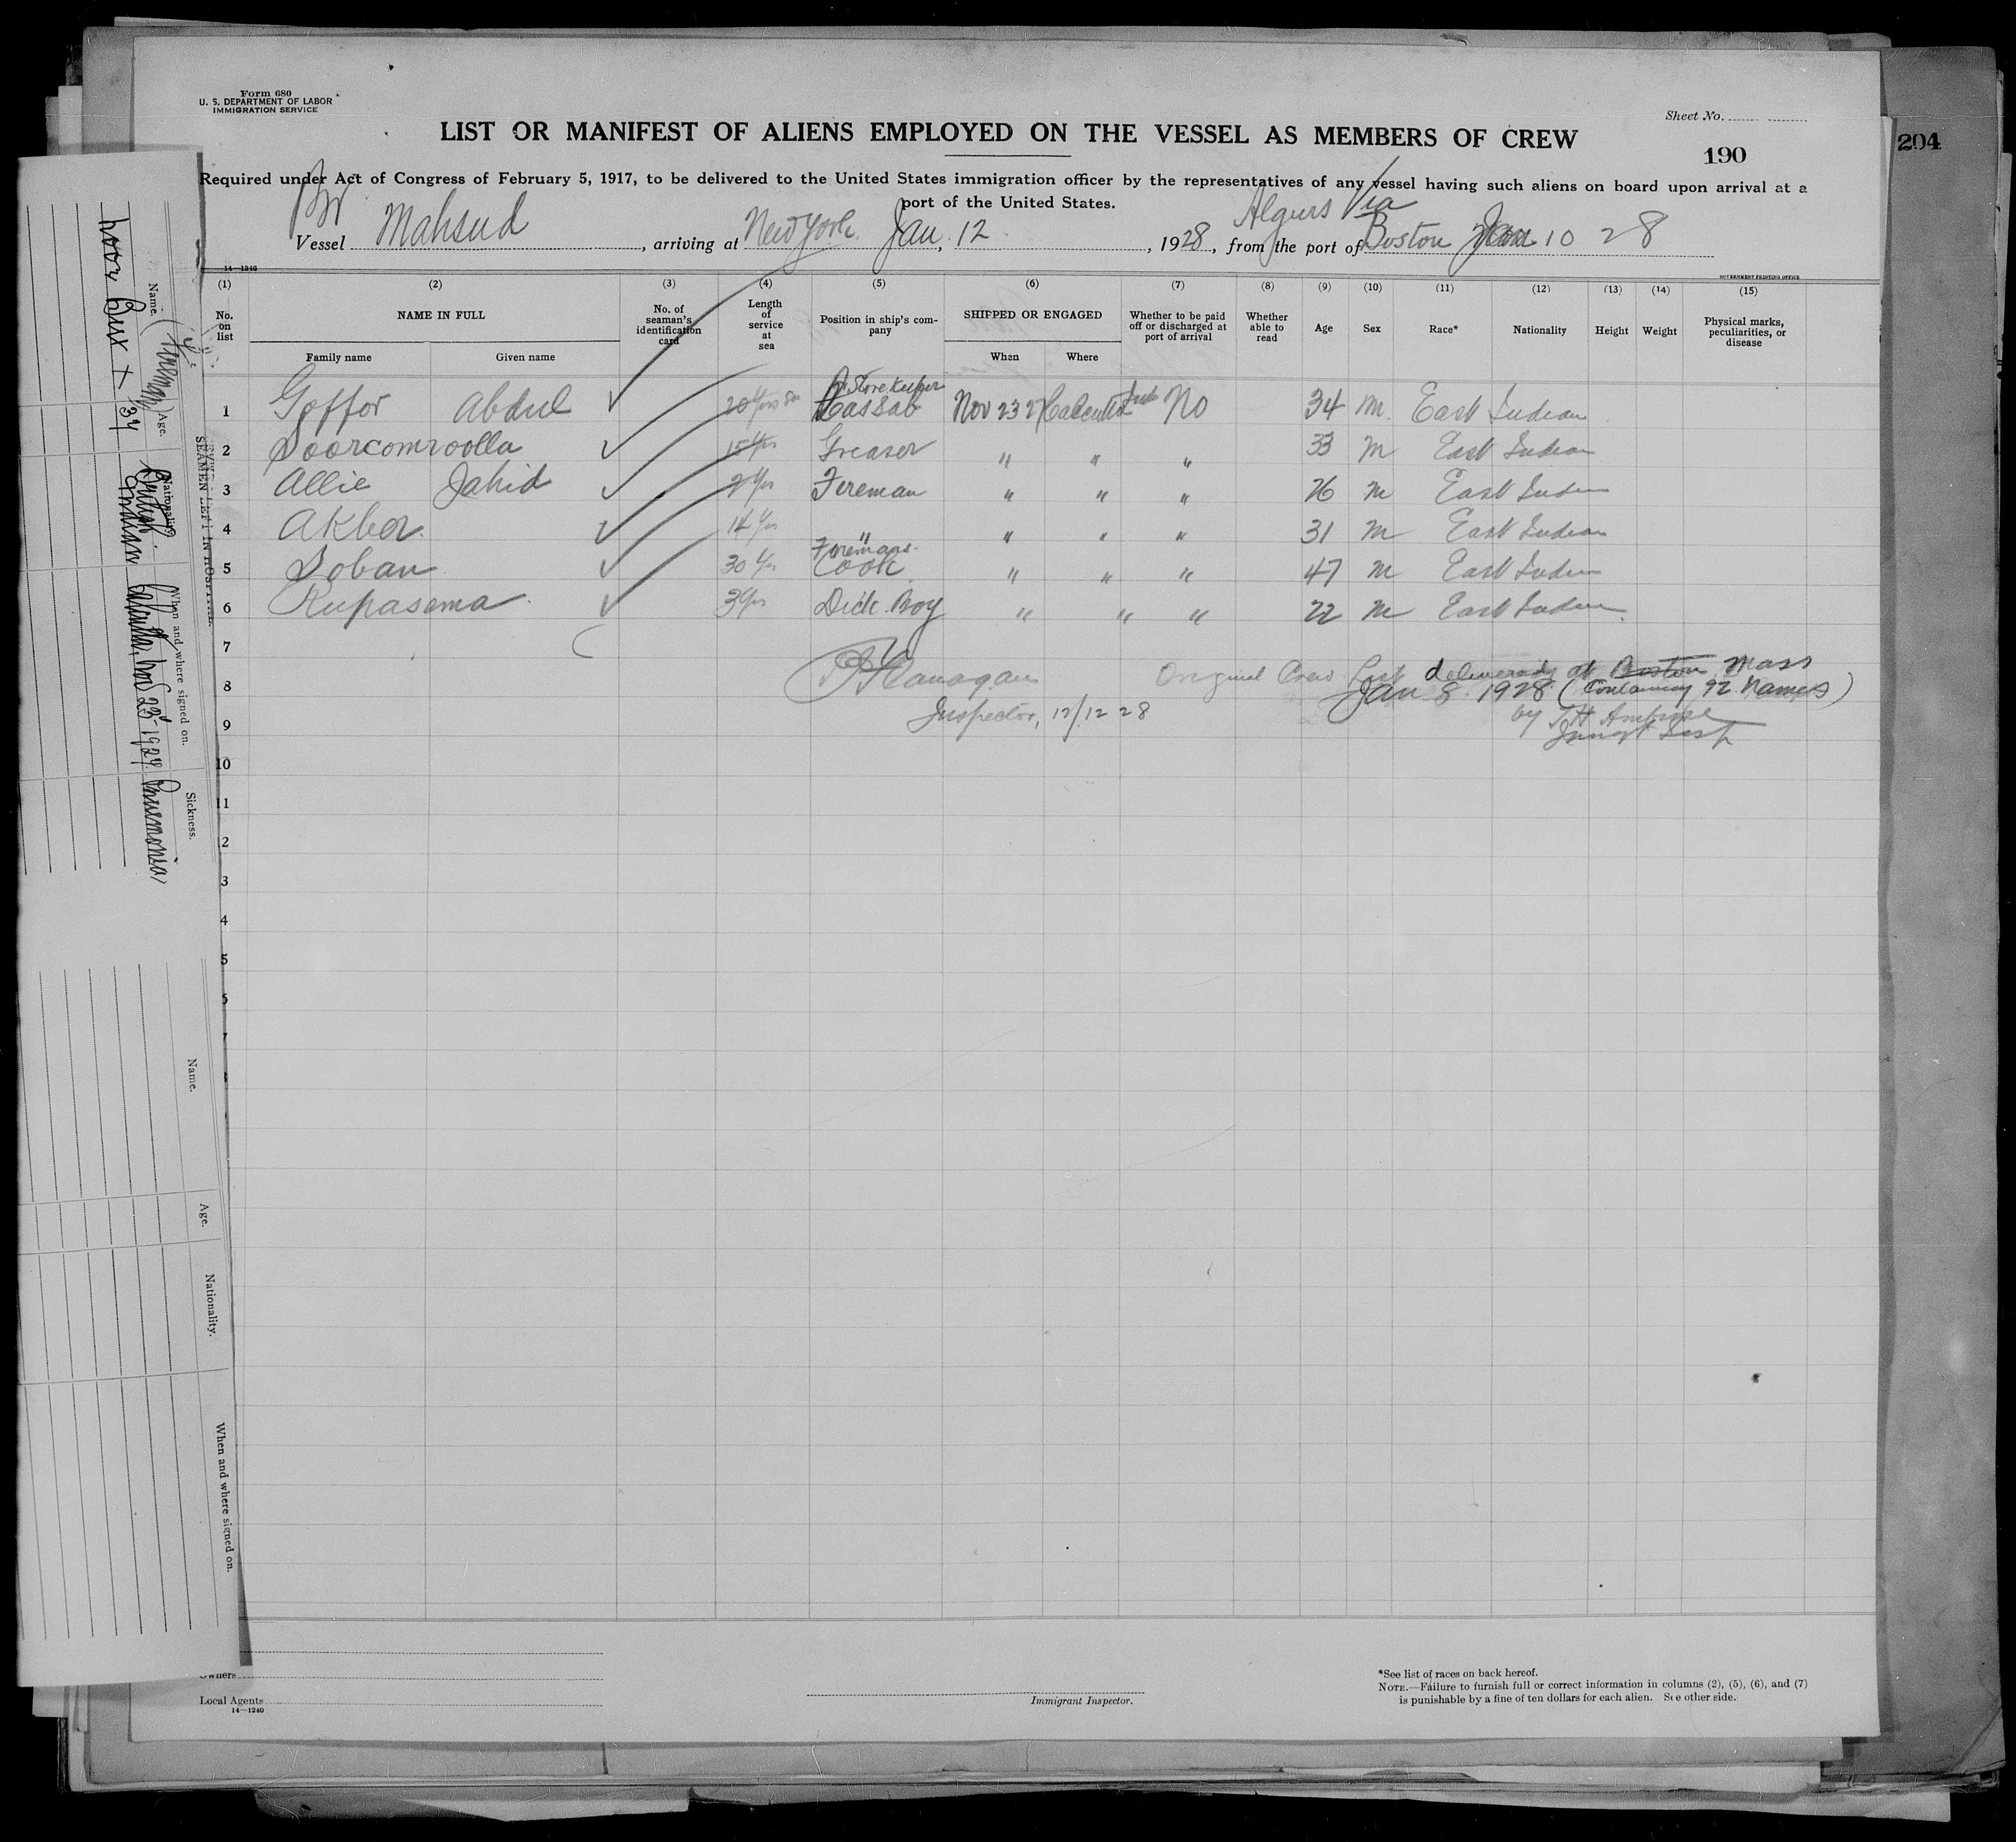 Form 680
U. S. DEPARTMENT OF LABOR
IMMIGRATION SERVICE
Sheet No.
LIST OR MANIFEST OF ALIENS EMPLOYED ON THE VESSEL AS MEMBERS OF CREW
190
204
Required under Act of Congress of February 5, 1917, to be delivered to the United States immigration officer by the representatives of any vessel having such aliens on board upon arrival at a
port of the United States.
Br
Algiers Via
Vessel Mahsud, arriving at New York Jan, 12, 1928, from the port of Boston Jan 10 28
14—1240
GOVERNMENT PRINTING OFFICE
(1) (2) (3) (4) (5) (6) (7) (8) (9) (10) (11) (12) (13) (14) (15)
No. on list NAME IN FULL No. of seaman's identification card Length of service at sea Position in ship's company SHIPPED OR ENGAGED Whether to be paid off or discharged at port of arrival Whether able to read Age Sex Race* Nationality Height Weight Physical marks, peculiarities, or disease
Family name Given name When Where
Storekeeper
1 Goffor Abdul 20 yrs Cassab Nov 23 27 Calcutta No 34 M. East Indian
2 Soorcomroolla 15 yrs Greaser " " " 33 M East Indian
3 Allie Jahid 2 yrs Fireman " " " 26 M East Indian
4 Akbor 14 yrs " " " " 31 M East Indian
Firemans
5 Soban 30 yrs Cook " " " 47 M East Indian
6 Rupasema 3 yrs Deck Boy " " " 22 M East Indian
7
8
9
10
11
2
3
4
5
Flanagan
Inspector, 12/12 28
Original Crew List delivered at Boston Mass
Jan 8 1928 (Containing 92 names)
by T H Ambrose
Immgt Insp
SEAMEN LEFT IN HOSPITAL.
Name. Age. Nationality. When and where signed on. Sickness.
Noor Bux + (Fireman) 34 British Indian Calcutta, Nov 23rd 1927. Pneumonia
Name. Age. Nationality. When and where signed on.
Owners
Local Agents
14—1240
Immigrant Inspector.
*See list of races on back hereof.
NOTE.—Failure to furnish full or correct information in columns (2), (5), (6), and (7)
is punishable by a fine of ten dollars for each alien. See other side.